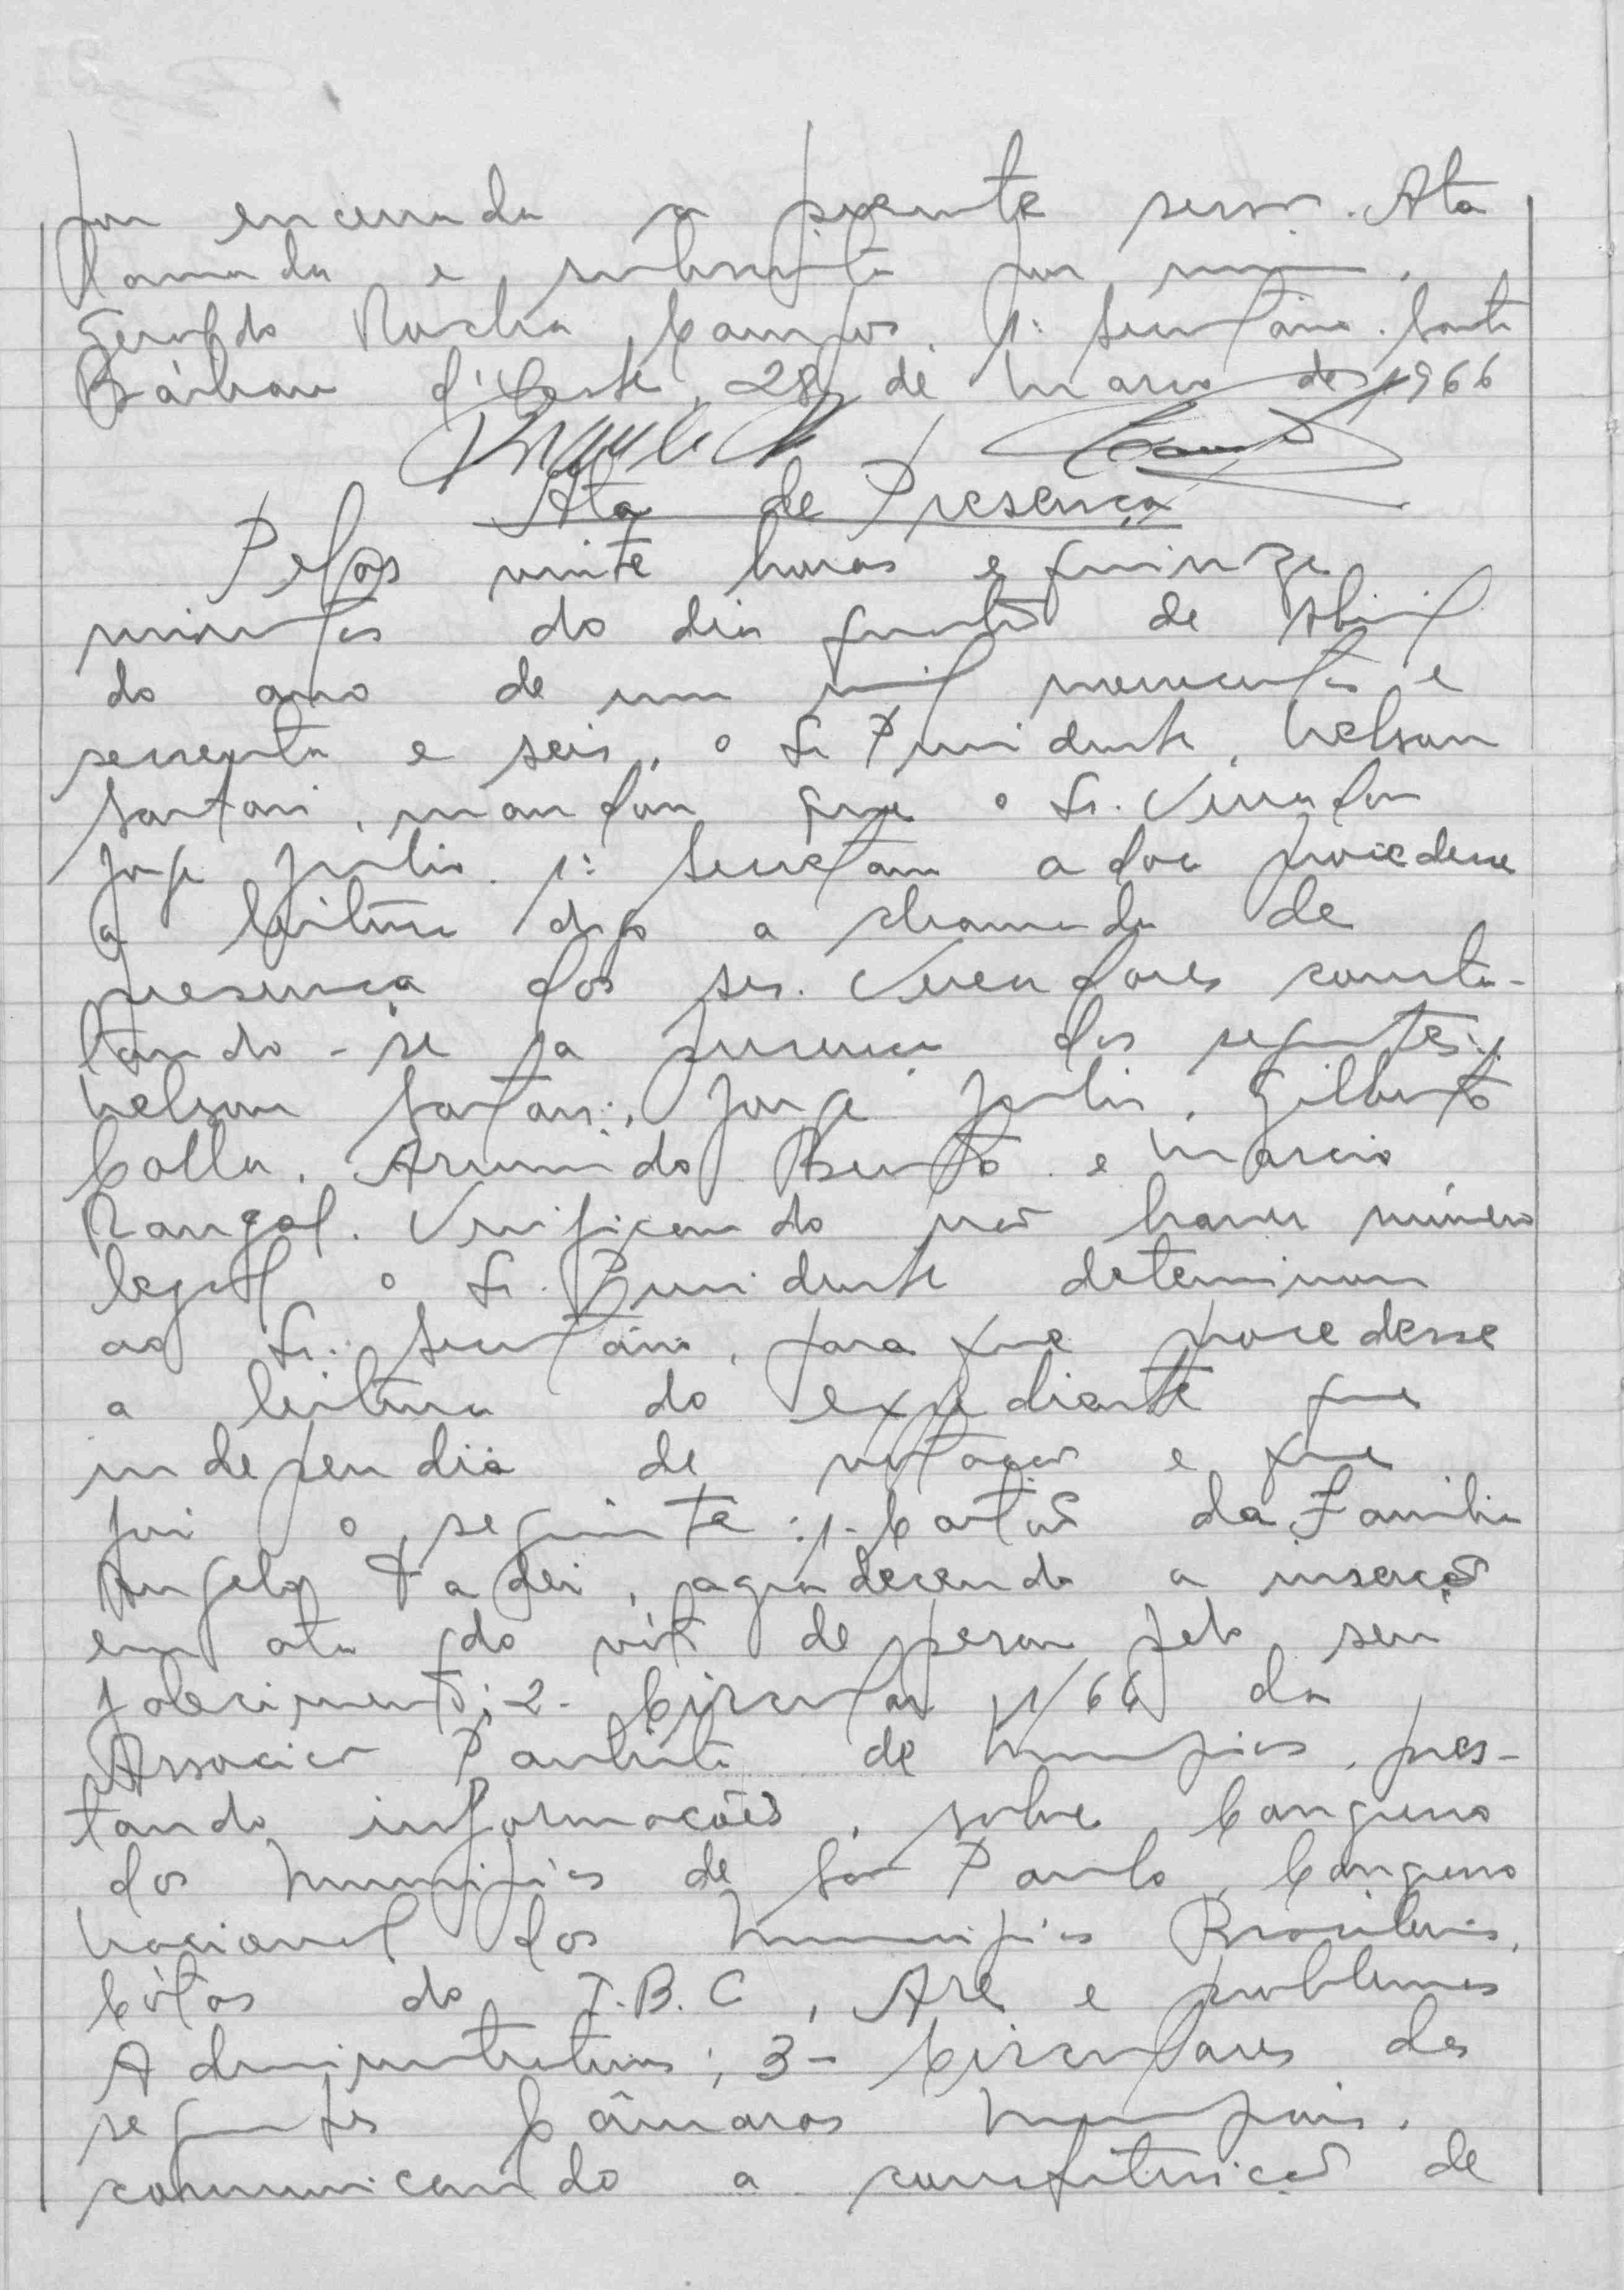 por encerrada a presente sessão. Ata
lavrada e subscrita por mim,
Geraldo Rocha Campos, 1º Secretário. Santa
Bárbara d'Oeste, 28 de Março de 1966
Ata de Presença
Pelas vinte horas e quinze
minutos do dia quatro de Abril
do ano de um mil novecentos e
sessenta e seis, o Sr Presidente, Nelson
Sartori, mandou que o Sr. Vereador
Jorge Julio, 1º Secretário adoc procedesse
a leitura digo a chamada de
presença dos srs. Vereadores consta-
tando-se a presença dos seguintes:
Nelson Sartori, Jorge Julio, Gilberto
Colla, Arumido Bento e Márcio
Rangel. Verificando não haver número
legal o Sr. Presidente determinou
ao Sr. Secretário, para que procedesse
a leitura do expediente que
independia de votação e que
foi o seguinte: 1- Cartão da Familia
Angelo Fadei, agradecendo a inserção
em ata do vóto de pesar pelo seu
falecimento; 2- Circular 1/66 da
Associação Paulista de Municípios, pres-
tando informações, sobre Congresso
dos Municípios de São Paulo, Congresso
Nacional dos Municípios Brasileiros,
Cótas do I.B.C, e problemas
Administrativos; 3- Circulares das
seguintes Câmaras Municipais,
comunicando a constituição de